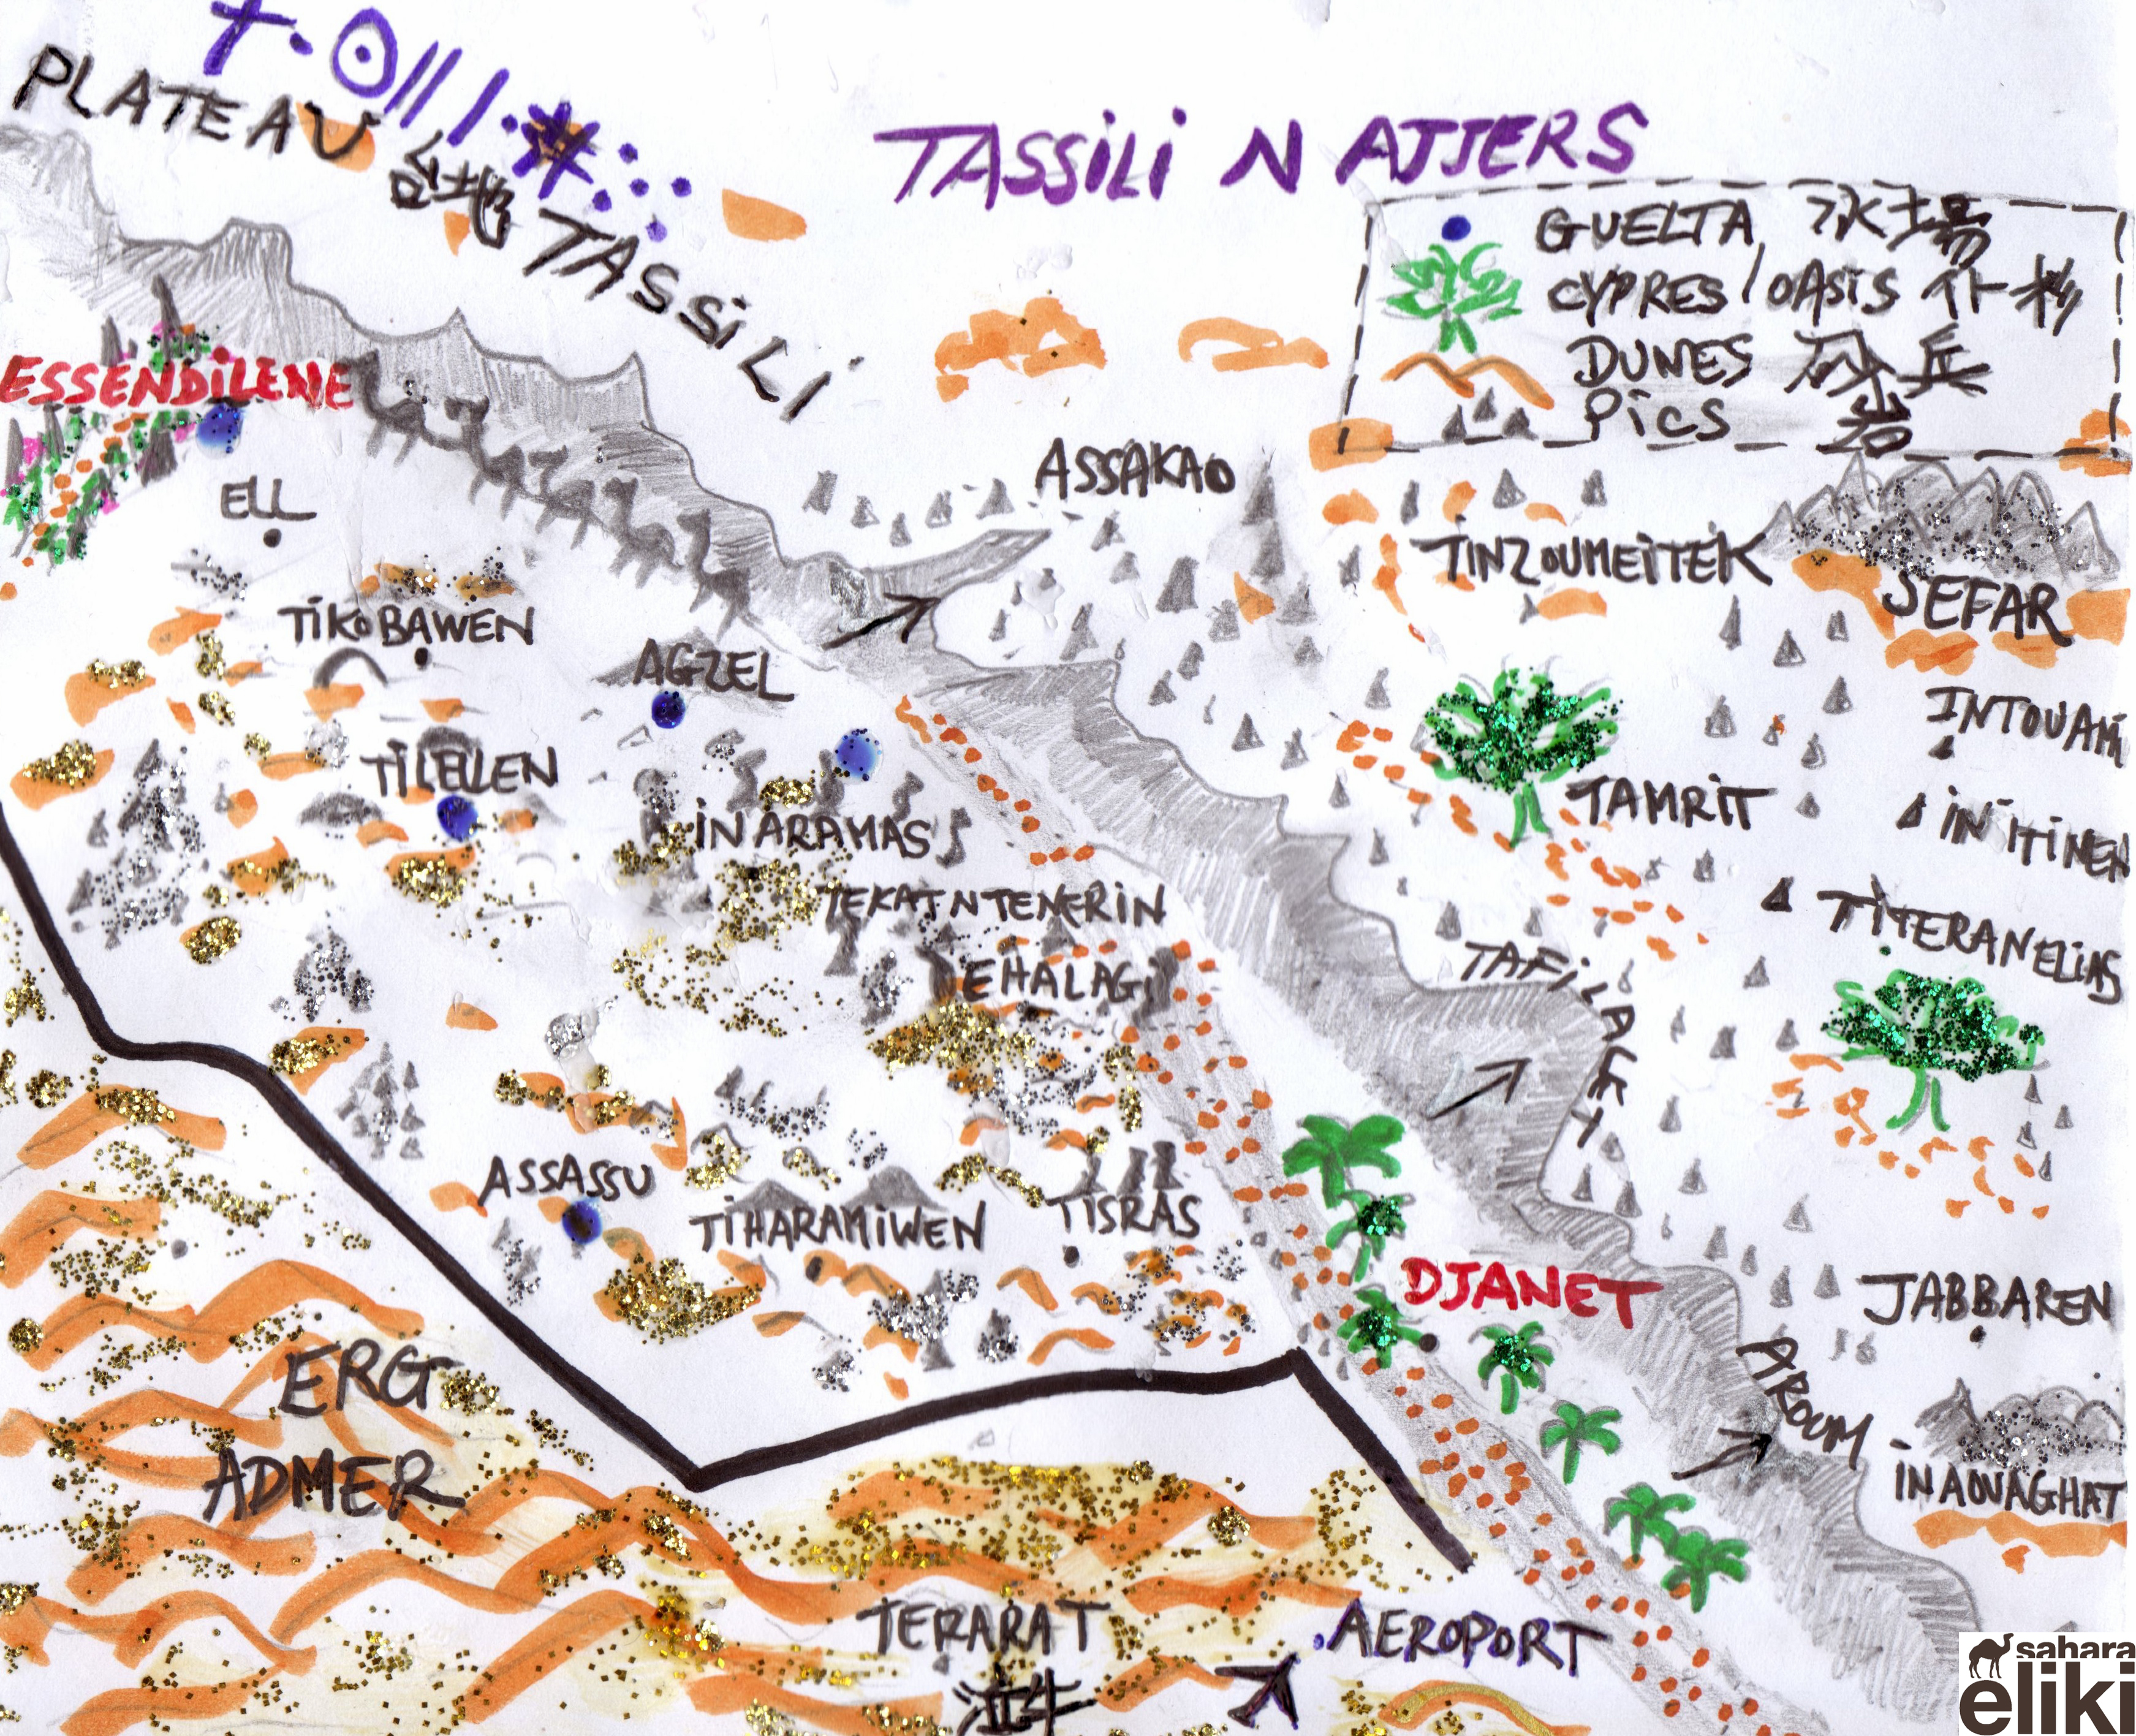 ⵜ·ⵙ||ⵏ·ⵣ⁖
PLATEAU 台地 TASSiLi
TASSiLi N AJJERS
GUELTA, 水場
CYPRES / OASiS 仆杉
DUNES 砂丘
PiCS 岩
ESSENDiLENE
ELL
ASSAKAO
TINZOUMEiTEK
SEFAR
TiKOBAWEN
AGZEL
INTOUAMi
TiLELLEN
iN ARAMAS
TAMRiT
iN iTiNEN
TEKAT N TENERiN
TiTERANELiAS
EHALAGi
TAFiLALET
ASSASSU
TiHARAMiWEN
TiSRAS
DJANET
JABBAREN
AROUM
iNAOUAGHAT
ERG
ADMER
TERARAT
AEROPORT
sahara
eliki